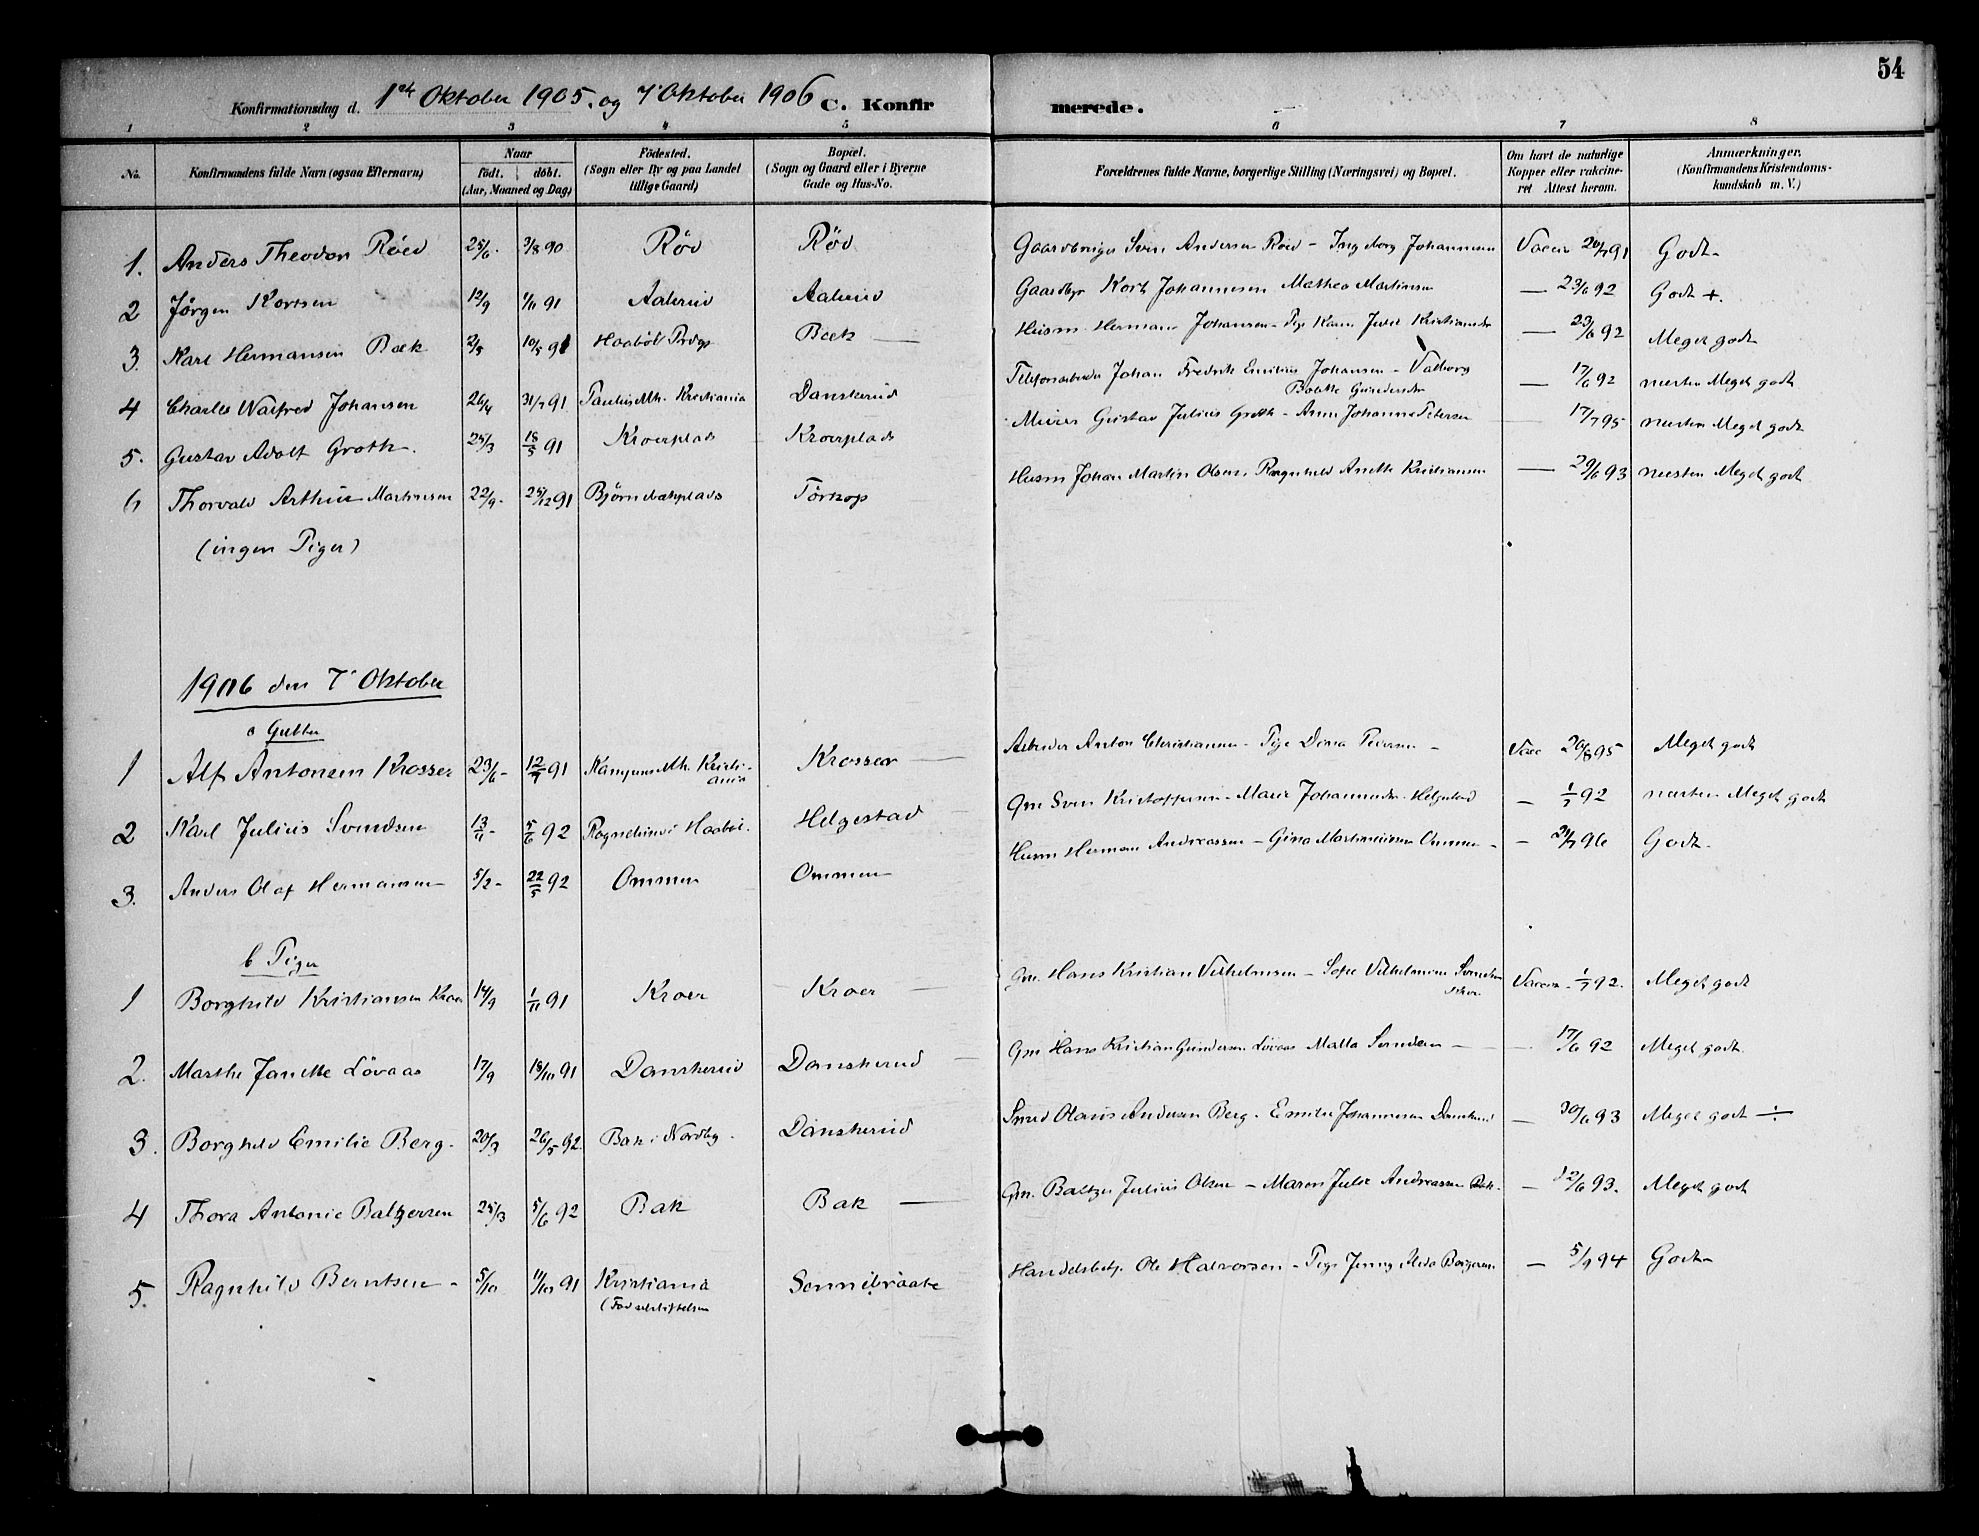 54
Konfirmationsdag d. 1ste Oktober 1905. og 7' Oktober 1906 C. Konfirmerede.
1 2 3 4 5 6 7 8
No. Konfirmandens fulde Navn (ogsaa Efternavn) Naar født. døbt. (Aar, Maaned og Dag) Fødested. (Sogn eller By og paa Landet tillige Gaard) Bopæl. (Sogn og Gaard eller i Byerne Gade og Hus-No. Forældrenes fulde Navne, borgerlige Stilling (Næringsvei) og Bopæl. Om havt de naturlige Kopper eller vakcineret Attest herom. Anmærkninger. (Konfirmandens Kristendomskundskab m. V.)
1. Anders Theodor Röed 25/6. 3/8 90 Röd Röd Gaardbruger Sven Andersen Röed - Ingeborg Johannesen Vaccin 20/7 91 Godt
2 Jørgen Kortsen 12/9 1/11 91 Aalerud Aalerud Gaardbr Kort Johannesen Mathea Martinsen — 23/6 92 Godt +.
3. Karl Hermansen Bæk 2/3 10/5 91 Haabøl Prdgj Bæk — Husm. Herman Johansen - Pige Karen Julie Kristiansdr — 23/6 92 Meget godt
4 Charles Walfred Johansen 26/4 31/7 91 Paulus Mh. Kristiania Danskerud Telefonarbeider Johan Fredrik Emilius Johansen - Valborg Bolette Gundersdr — 17/6 92 næsten Meget godt
5. Gustav Adolf Groth. 25/3 18/5 91 Kroerplads Kroerplads Murer Gustav Julius Groth - Anna Johanne Petersen — 17/7 95 næsten Meget godt
6 Thorvald Arthur Martinsen 22/9. 25/12 91 Bjørnebækplads Törkop Husm Johan Martin Olsen. Ragnhild Anette Kristiansen — 29/6 93 næsten Meget godt
(ingen Piger)
1906 den 7' Oktober
a Gutter
1 Alf Antonsen Krosser 23/6 - 12/7 91 Kampens Mh. Kristiania Krosser — Arbeider Anton Christiansen - Pige Dina Pedersen - Vacc 20/8 95 Meget godt
2 Karl Julius Svendsen 13/11 5/6 92 Rognelien i Haabøl. Helgestad Gm Sven Kristoffersen - Marie Johannesdr Helgestad — 1/7 92 næsten Meget godt
3. Anders Olaf Hermansen 5/2 - 22/5 92 Ommen Ommen Husm Herman Andreassen - Gina Martiniusen Ommen - — 21/7 96 Godt.
b Piger
1 Borghild Kristiansen Kroer 14/9 1/11 91 Kroer Kroer — Gm. Hans Kristian Vilhelmsen - Sofie Vilhelmine Svendsen Vaccin - 1/7 92. Meget godt
2. Marthe Janette Lövaas 17/9 18/10 91 Danskerud Danskerud — Gm Hans Kristian Gundersen Lövaas Malla Svendsen — 17/6 92 Meget godt.
3. Borghild Emilie Berg. 20/3 26/5 92. Bak i Nordby. Danskerud Smed Olaus Andersen Berg - Emilie Johannesen Danskerud — 30/6 93 Meget godt ÷
4 Thora Antonie Baltzersen 25/3 5/6 92 Bak Bak — Gm. Baltzer Julius Olsen - Maren Julie Andreassen Bak. — 12/6 93. Meget godt
5. Ragnhild Berntsen - 5/10 11/10 91 Kristiania (Fødselsstiftelsen Sonnebraate Handelsbetj. Ole Halvorsen - Pige Jenny Alvida Borgersen — 5/9 94 Godt